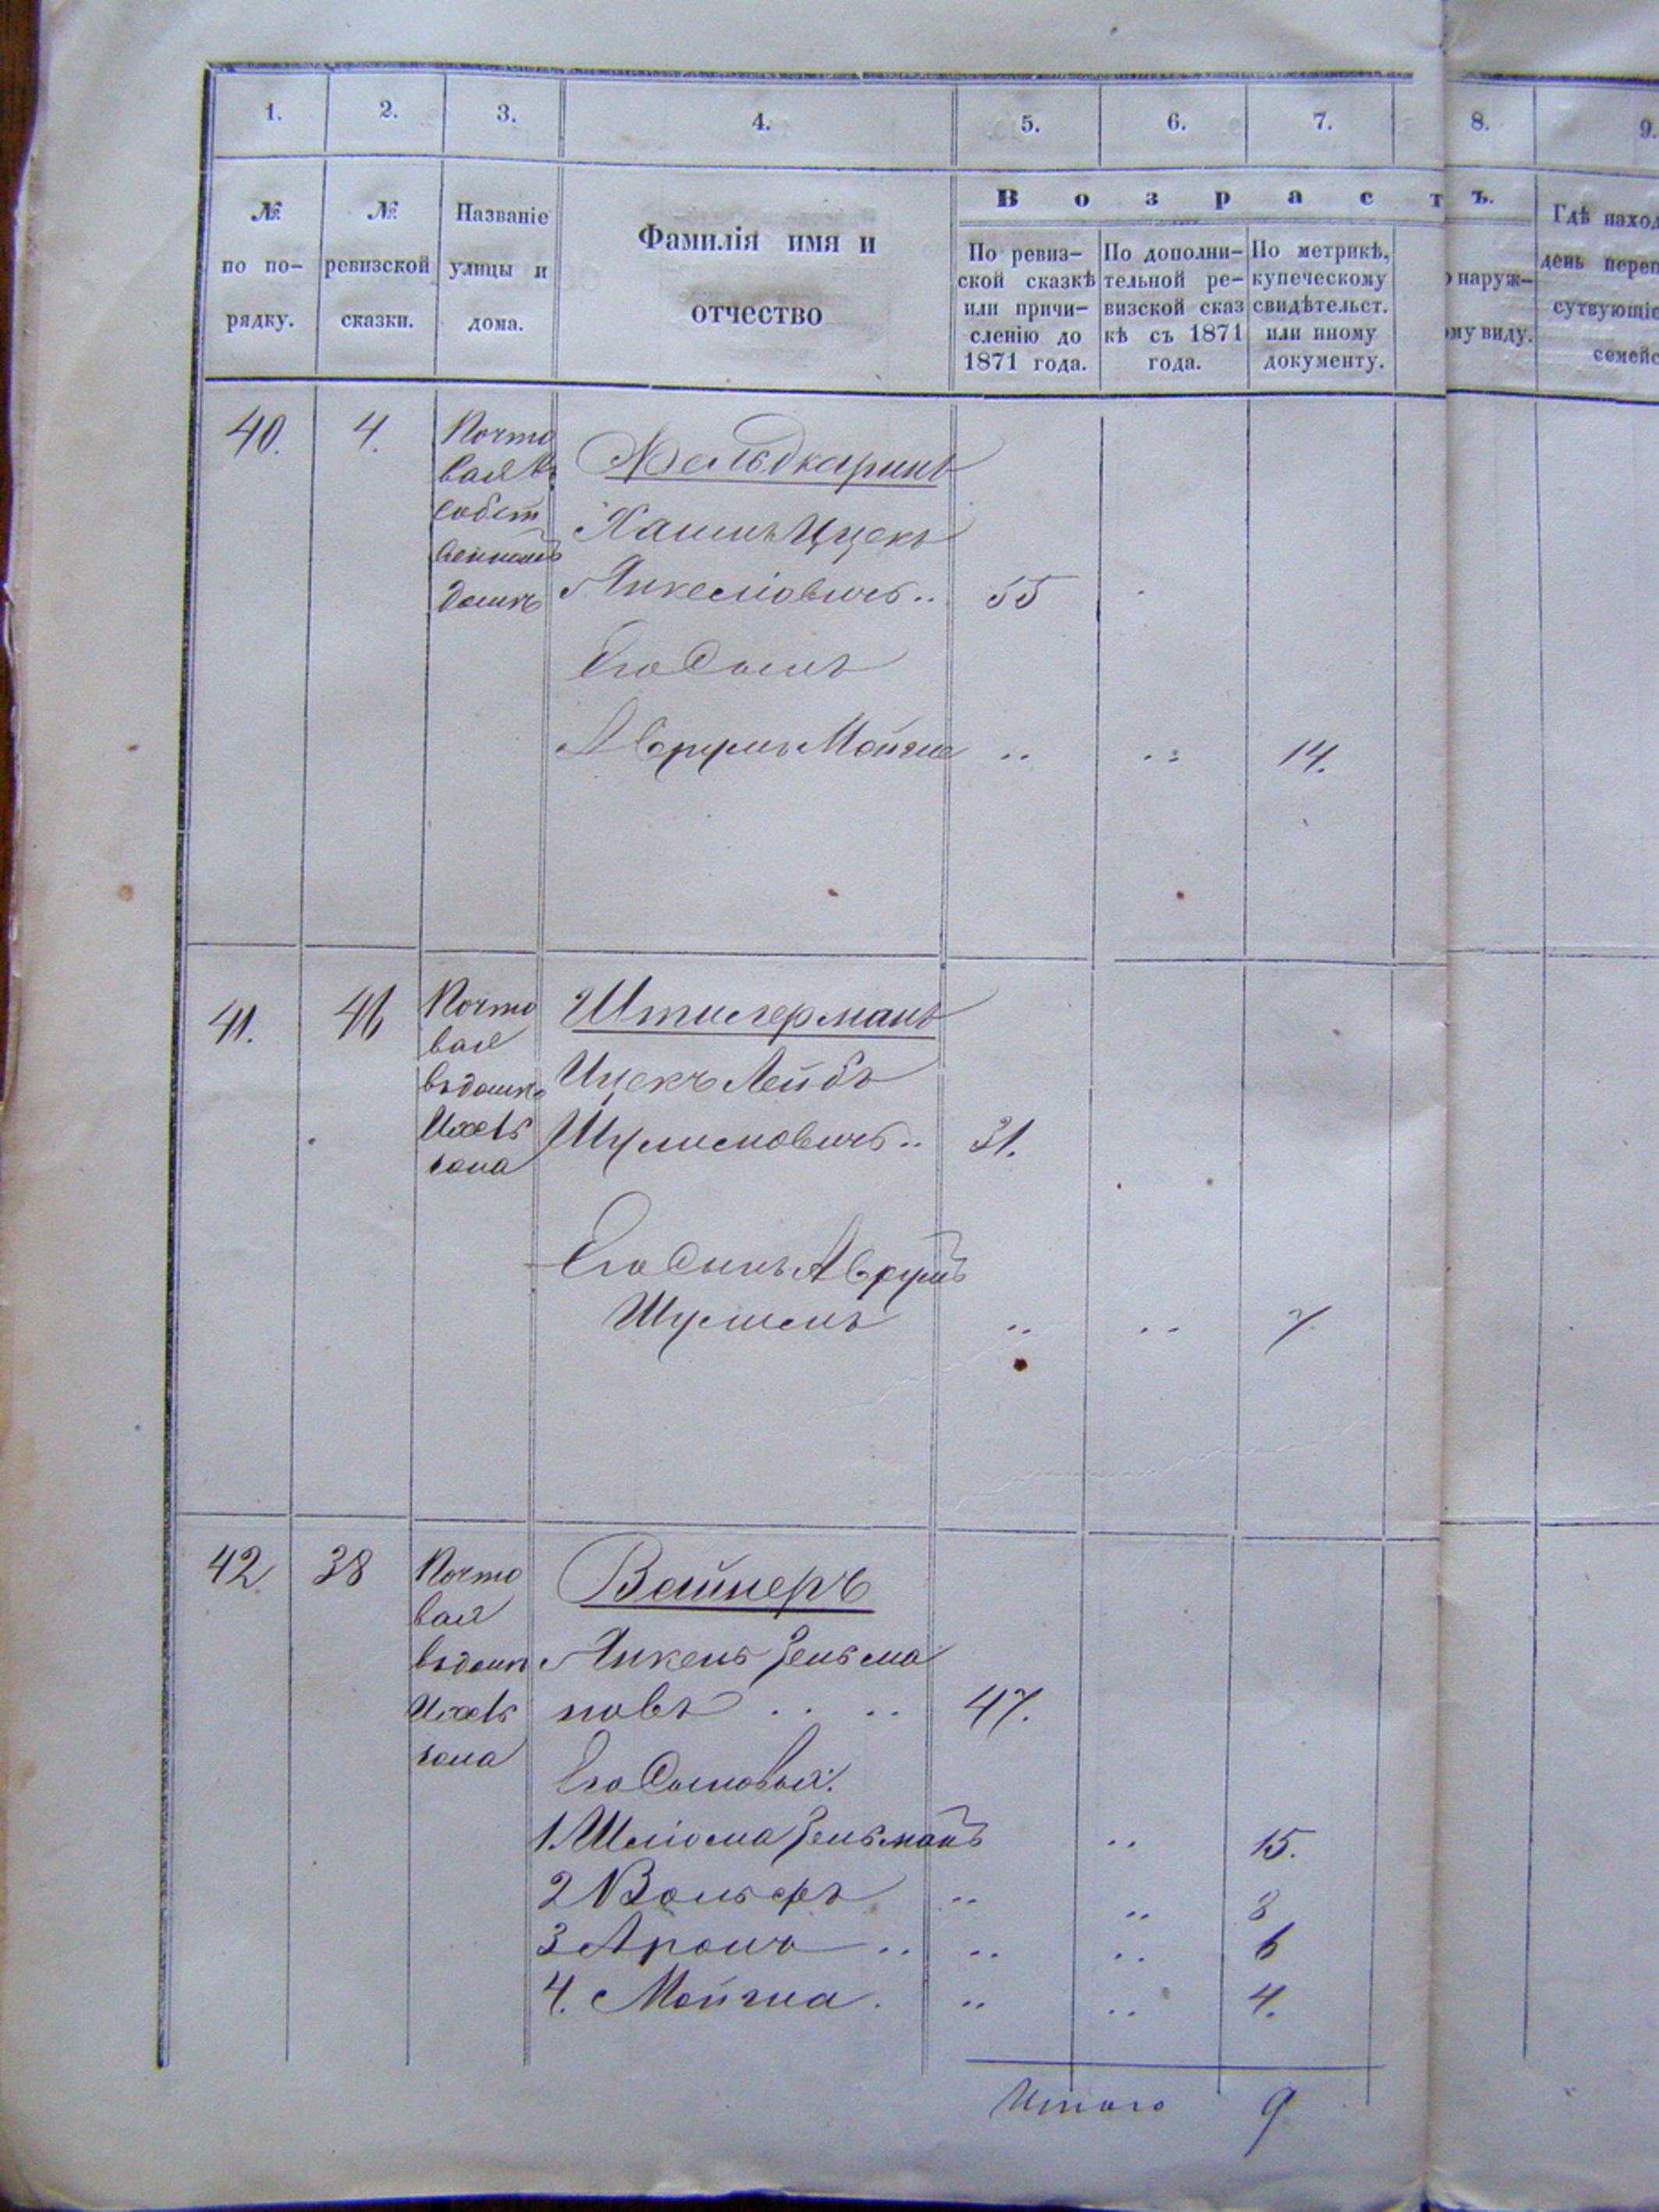 1. 2. 3. 4. 5. 6. 7. 8. 9.
№ по по- рядку.
№ ревизской сказки.
Названіе улицы и дома.
Фамилія имя и
отчество
В о з р а с т ъ.
По ревиз-
ской сказкѣ
или причи-
сленію до
1871 года.
По дополни-
тельной ре-
визской сказ
кѣ съ 1871
года.
По метрикѣ,
купеческому
свидѣтельст.
или иному
документу.
наруж-
ому виду.
Гдѣ наход
день переп
сутвующіе
семейс
40. 4.
Почто
вая въ
собст
венномъ
домѣ
Фельдкаринъ
Хаимъ Ицекъ
Янкеліовичъ .. 55
Его Сынъ
Аврумъ Мойше .. .. 14.
41. 46
Почто
вая
въ домѣ
Штилерманъ
Ицекъ Лейбъ
Шулимовичъ .. 31.
Его Сынъ Аврумъ
Шулимъ .. .. 7.
42 38
Почто
вая
въ домѣ
Вайнеръ
Янкель Зельма
новъ .. .. 47.
Его Сыновья:
1. Шліома Зельманъ .. 15.
2 Вольфъ .. .. 8
3 Аронъ .. .. .. 6
4. Мойша. .. .. 4.
Итого 9